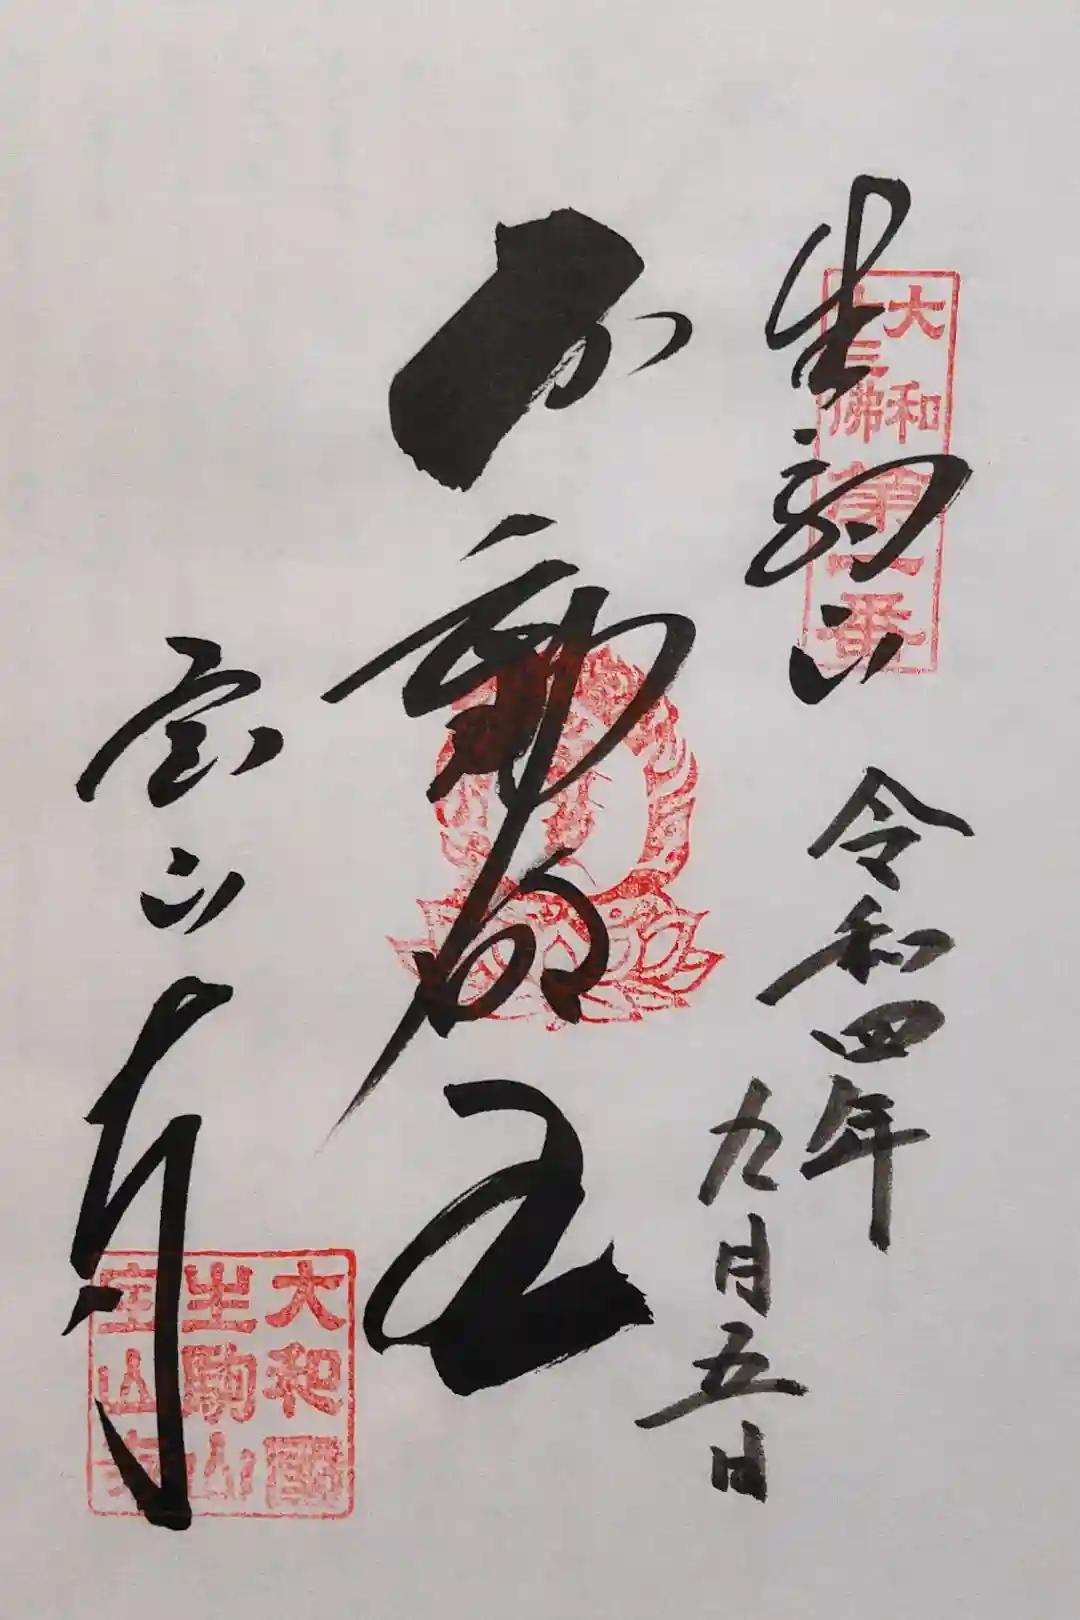 生駒山
令和四年
九月五日
大和
十三佛
第一番
不動明王
宝山寺
大和國
生駒山
宝山寺